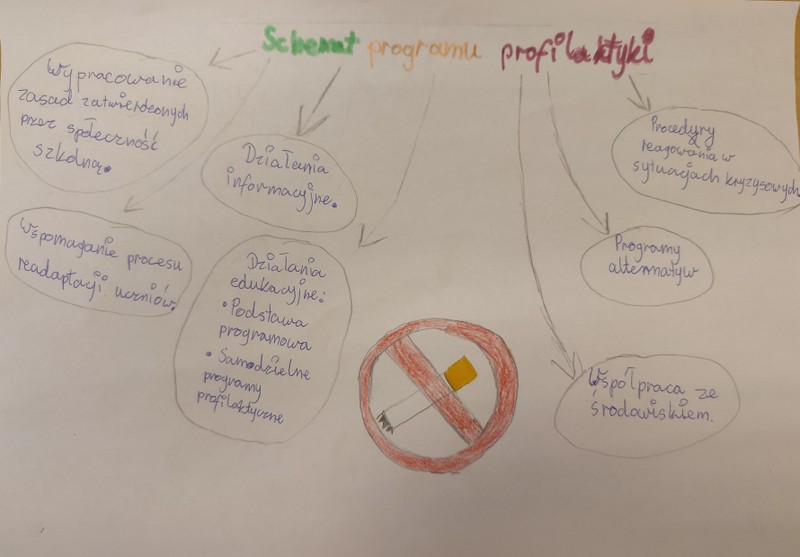 Schemat programu profilaktyki
Wypracowanie
zasad zatwierdzonych
przez społeczność
szkolną.
Wspomaganie procesu
readaptacji uczniów.
Działania
informacyjne.
Działania
edukacyjne:
• Podstawa
programowa
• Samodzielne
programy
profilaktyczne
Procedury
reagowania w
sytuacjach kryzysowych
Programy
alternatyw
Współpraca ze
środowiskiem.